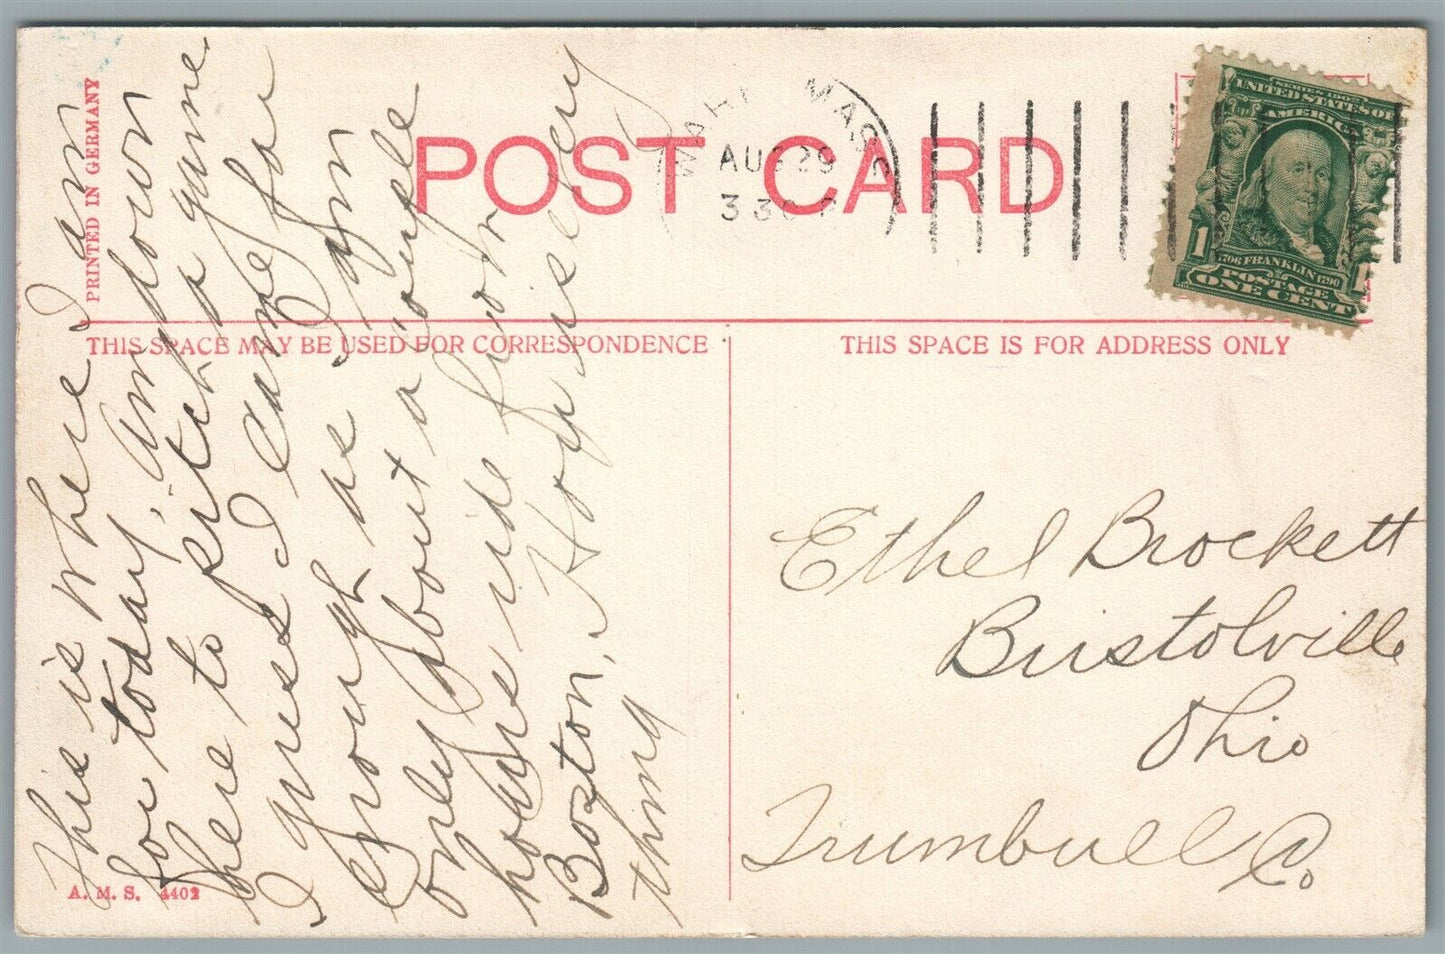 PRINTED IN GERMANY
POST CARD
MASS
AUG 29
330 P
SERIES 1902
UNITED STATES OF
AMERICA
1706 FRANKLIN 1790
POSTAGE
1 1
ONE CENT
THIS SPACE MAY BE USED FOR CORRESPONDENCE
THIS SPACE IS FOR ADDRESS ONLY
This is where I am
for today, am down
here to pitch a game
I guess I came far
enough as I am
only about a couple
hours ride from
Boston. Hoy is every
thing
Ethel Brockett
Bristolville
Ohio
Trumbull Co.
A. M. S. 4402